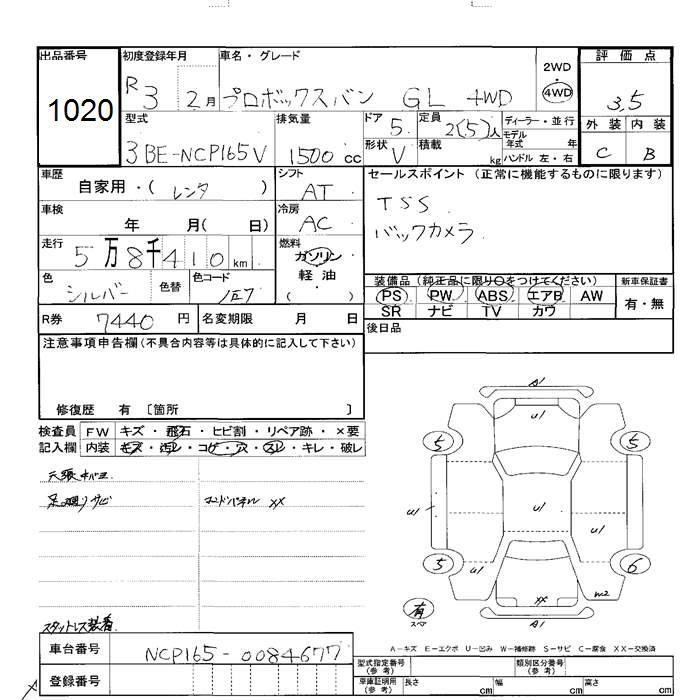 出品番号 初度登録年月 車名・グレード 2WD 評価点
1020 R3 2月 プロボックスバン GL 4WD 4WD 3.5
型式 排気量 ドア 5 定員 2(5)人 ディーラー・並行 外装 内装
3BE-NCP165V 1500cc 形状 V 積載 kg モデル年式 年 C B
ハンドル 左・右
車歴 自家用・(レンタ) シフト AT セールスポイント (正常に機能するものに限ります)
車検 年 月( 日) 冷房 AC TSS
走行 5万8千410km 燃料 ガソリン バックカメラ
色 シルバー 色替 色コード 1E7 軽油 ( )
装備品 (純正品に限り○をつけてください) 新車保証書
PS PW ABS エアB AW 有・無
SR ナビ TV カワ
R券 7440円 名変期限 月 日 後日品
注意事項申告欄(不具合内容等は具体的に記入して下さい)
修復歴 有 〔箇所 〕
検査員 FW キズ・飛石・ヒビ割・リペア跡・×要
記入欄 内装 キズ・汚レ・コゲ・穴・スレ・キレ・破レ
足廻りサビ コードパネル XX
スタットレス装着
A1
U1
5 5
U1 U1 U1
5 U1 6
XX m2
有 スペア A1
A-キズ E-エクボ U-凹み W-補修跡 S-サビ C-腐食 XX-交換済
車台番号 NCP165-0084677
登録番号
型式指定番号(参考) 類別区分番号(参考)
車庫証明用(参考) 長さ cm 幅 cm 高さ cm